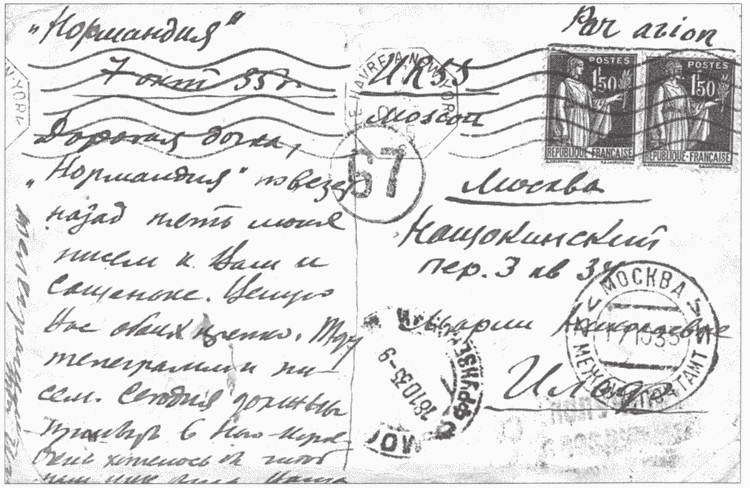 „Нормандия"
7 окт 35 г.
Дорогая дочка,
„Нормандия" повезет
назад пять моих
писем к Вам и
Сашеньке. Целую
Вас обоих крепко. Жду
телеграмм и пи-
сем. Сегодня должны
прибыть в Нью-Иорк
Очень хотелось бы чтоб
Par avion
URSS
Moscou
Москва
Нащокинский
пер. 3 кв
Марии Николаевне
POSTES
1F50
REPUBLIQUE-FRANÇAISE
POSTES
1F50
REPUBLIQUE-FRANÇAISE
LE HAVRE A NEW-YORK
67
МОСКВА
17 10 35
18 10 35-9